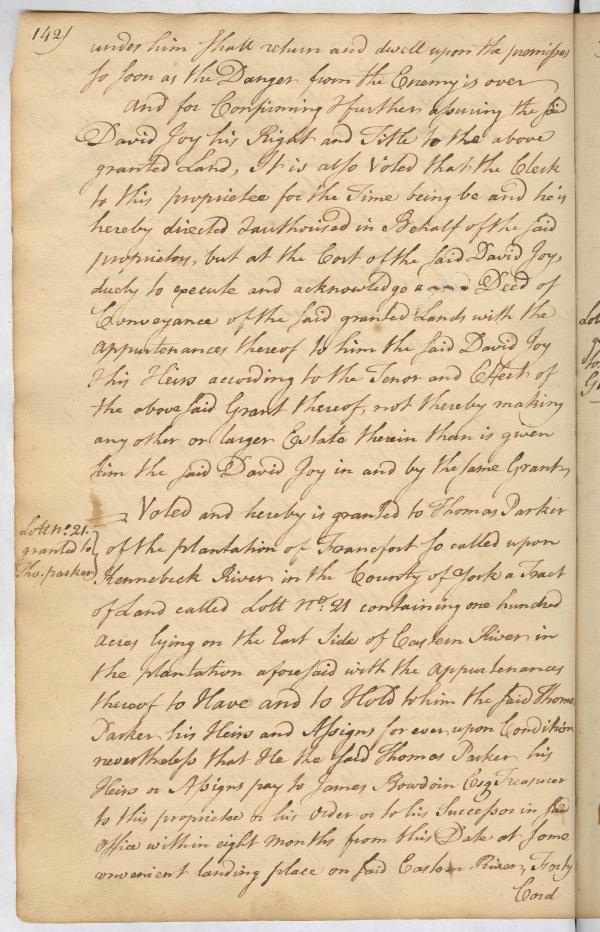 142/
under him shall return and dwell upon the premisses
so soon as the Danger from the Enemy is over
And for Confirming & further assuring the said
David Joy his Right and Title to the above
granted Land, It is also Voted that the Clerk
to this propriete for the Time being be and he is
hereby directed & authorised in Behalf of the said
proprietors, but at the Cost of the said David Joy,
duely to execute and acknowledge a Deed of
Conveyance of the said granted Lands with the
appurtenances thereof to him the said David Joy
& his Heirs according to the Tenor and Effect of
the above said Grant thereof, not thereby making
any other or larger Estate therein than is given
him the said David Joy in and by the same Grant,
Voted and hereby is granted to Thomas Parker
Lott no. 21.
granted to
Tho. parker
of the plantation of Francfort so called upon
Kennebeck River in the County of York a Tract
of Land called Lott no. 21 containing one hundred
acres lying on the East Side of Eastern River in
the plantation aforesaid with the appurtenances
thereof to Have and to Hold to him the said Thomas
Parker his Heirs and Assigns for ever upon Condition
nevertheless that He the said Thomas Parker his
Heirs or Assigns pay to James Bowdoin Esq Treasurer
to this propriete or his order or to his Successor in said
office within eight months from this Date at some
convenient landing place on said Eastern River, Forty
Cord